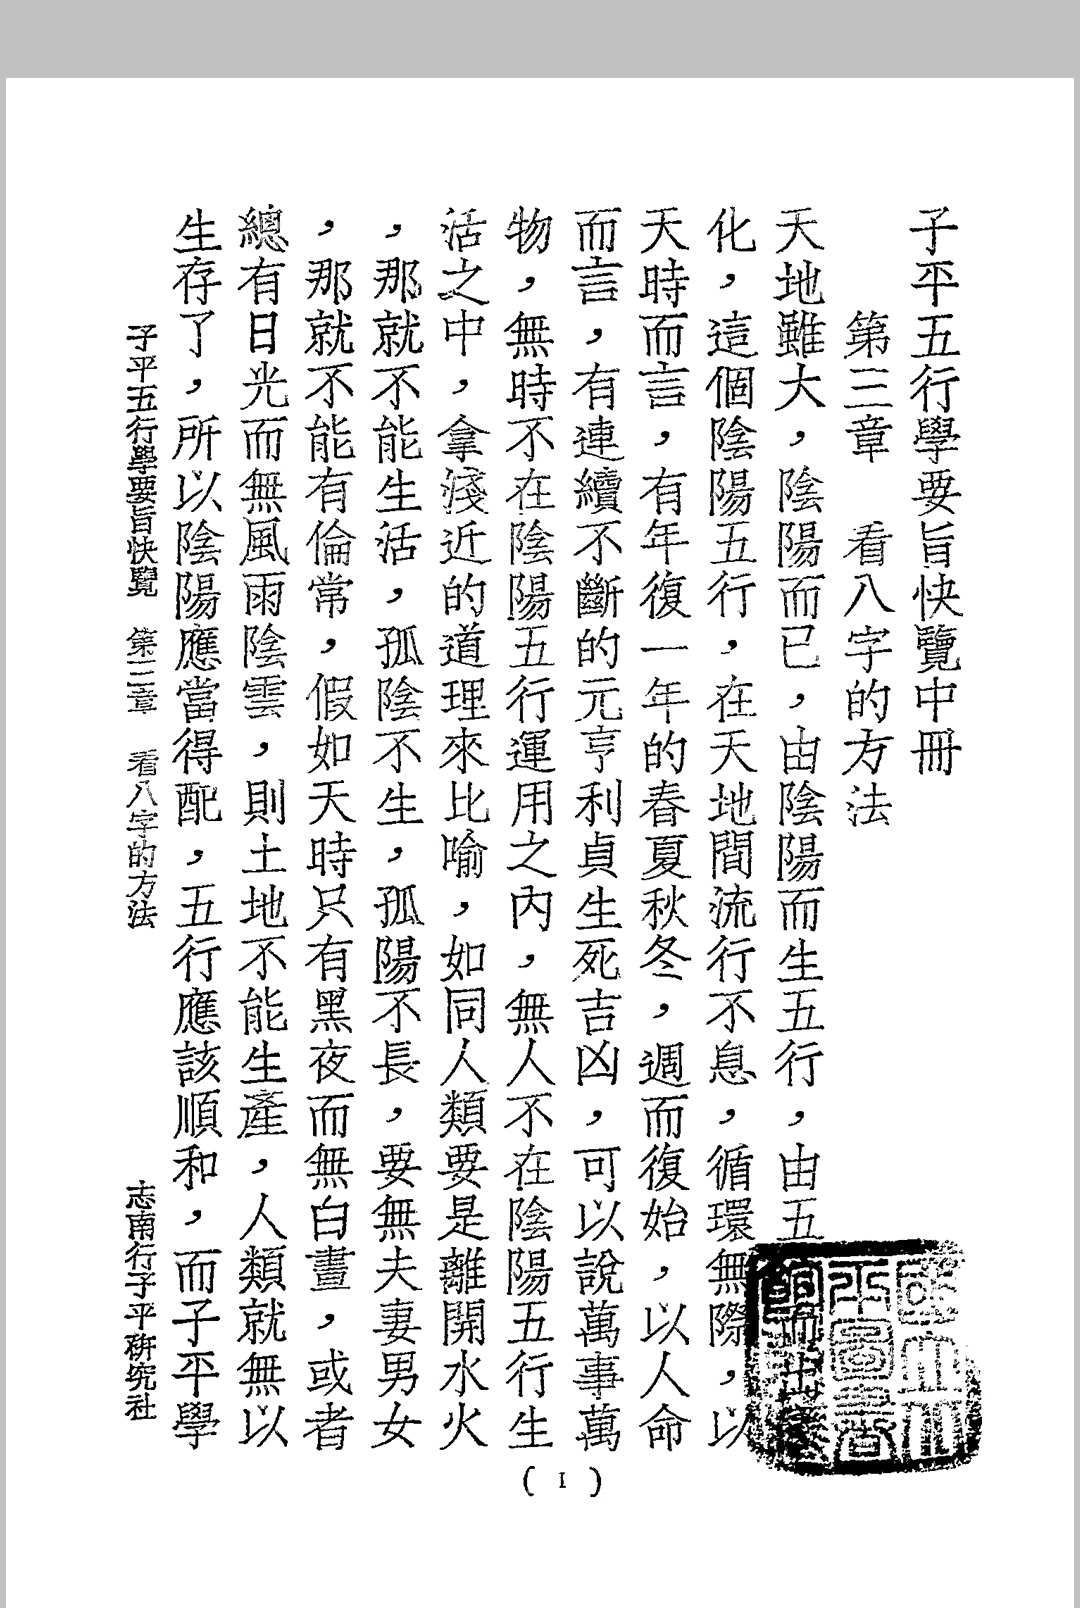 子平五行學要旨快覽中冊
第三章　看八字的方法
天地雖大，陰陽而已，由陰陽而生五行，由五
化，這個陰陽五行，在天地間流行不息，循環無際，以
天時而言，有年復一年的春夏秋冬，週而復始，以人命
而言，有連續不斷的元亨利貞生死吉凶，可以說萬事萬
物，無時不在陰陽五行運用之內，無人不在陰陽五行生
活之中，拿淺近的道理來比喻，如同人類要是離開水火
，那就不能生活，孤陰不生，孤陽不長，要無夫妻男女
，那就不能有倫常，假如天時只有黑夜而無白晝，或者
總有日光而無風雨陰雲，則土地不能生產，人類就無以
生存了，所以陰陽應當得配，五行應該順和，而子平學
子平五行學要旨快覽　第三章　看八字的方法　志南行子平研究社
( I )